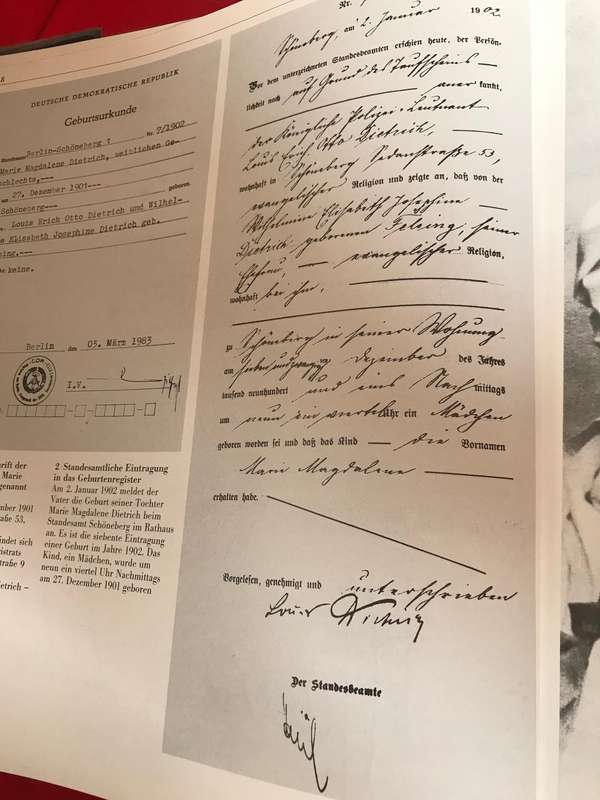 8
DEUTSCHE DEMOKRATISCHE REPUBLIK
Geburtsurkunde
Berlin-Schöneberg I Nr. 7/1902
Marie Magdalene Dietrich, weiblichen Ge-
schlechts,---
27. Dezember 1901--- geboren.
Schöneberg---
Louis Erich Otto Dietrich und Wilhel-
Elisabeth Josephine Dietrich geb.
sing.---
keine.
Berlin den 03. März 1983
I.V.
rift der
Marie
genannt
ember 1901
aße 53,
indet sich
istrats
traße 9
ietrich –
2 Standesamtliche Eintragung
in das Geburtenregister
Am 2. Januar 1902 meldet der
Vater die Geburt seiner Tochter
Marie Magdalene Dietrich beim
Standesamt Schöneberg im Rathaus
an. Es ist die siebente Eintragung
einer Geburt im Jahre 1902. Das
Kind, ein Mädchen, wurde um
neun ein viertel Uhr Nachmittags
am 27. Dezember 1901 geboren
Nr.
Schöneberg, am 2. Januar 1902
Vor dem unterzeichneten Standesbeamten erschien heute, der Persön-
lichkeit nach auf Grund des Taufscheins
anerkannt,
der Königliche Polizei-Leutnant
Louis Erich Otto Dietrich,
wohnhaft in Schöneberg Sedanstraße 53,
evangelischer Religion und zeigte an, daß von der
Wilhelmine Elisabeth Josephine
Dietrich, geborenen Felsing, seiner
Ehefrau, evangelischer Religion,
wohnhaft bei ihm,
zu Schöneberg in seiner Wohnung
am sieben und zwanzigsten Dezember des Jahres
tausend neunhundert und eins Nachmittags
um neun ein viertel Uhr ein Mädchen
geboren worden sei und daß das Kind die Vornamen
Marie Magdalene
erhalten habe.
Vorgelesen, genehmigt und unterschrieben
Louis Dietrich
Der Standesbeamte